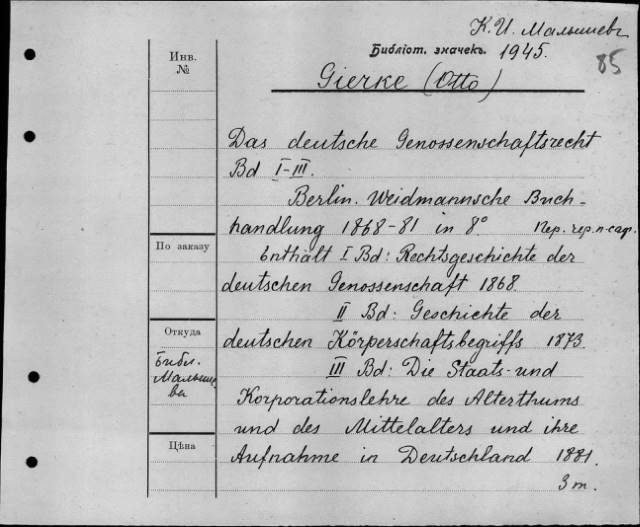 К. И. Малышевъ
Библіот. значекъ. 1945.
85
Gierke (Otto)
Инв.
№
Das deutsche Genossenschaftsrecht
Bd I-III.
Berlin. Weidmannsche Buch-
handlung 1868-81 in 8° Пер. чер. п-сар.
Enthält I Bd: Rechtsgeschichte der
deutschen Genossenschaft 1868
II Bd: Geschichte der
deutschen Körperschaftsbegriffs 1873.
III Bd: Die Staats- und
Korporationslehre des Alterthums
und des Mittelalters und ihre
Aufnahme in Deutschland 1881.
3 т.
По заказу
Откуда
Библ.
Малыше
ва
Цѣна